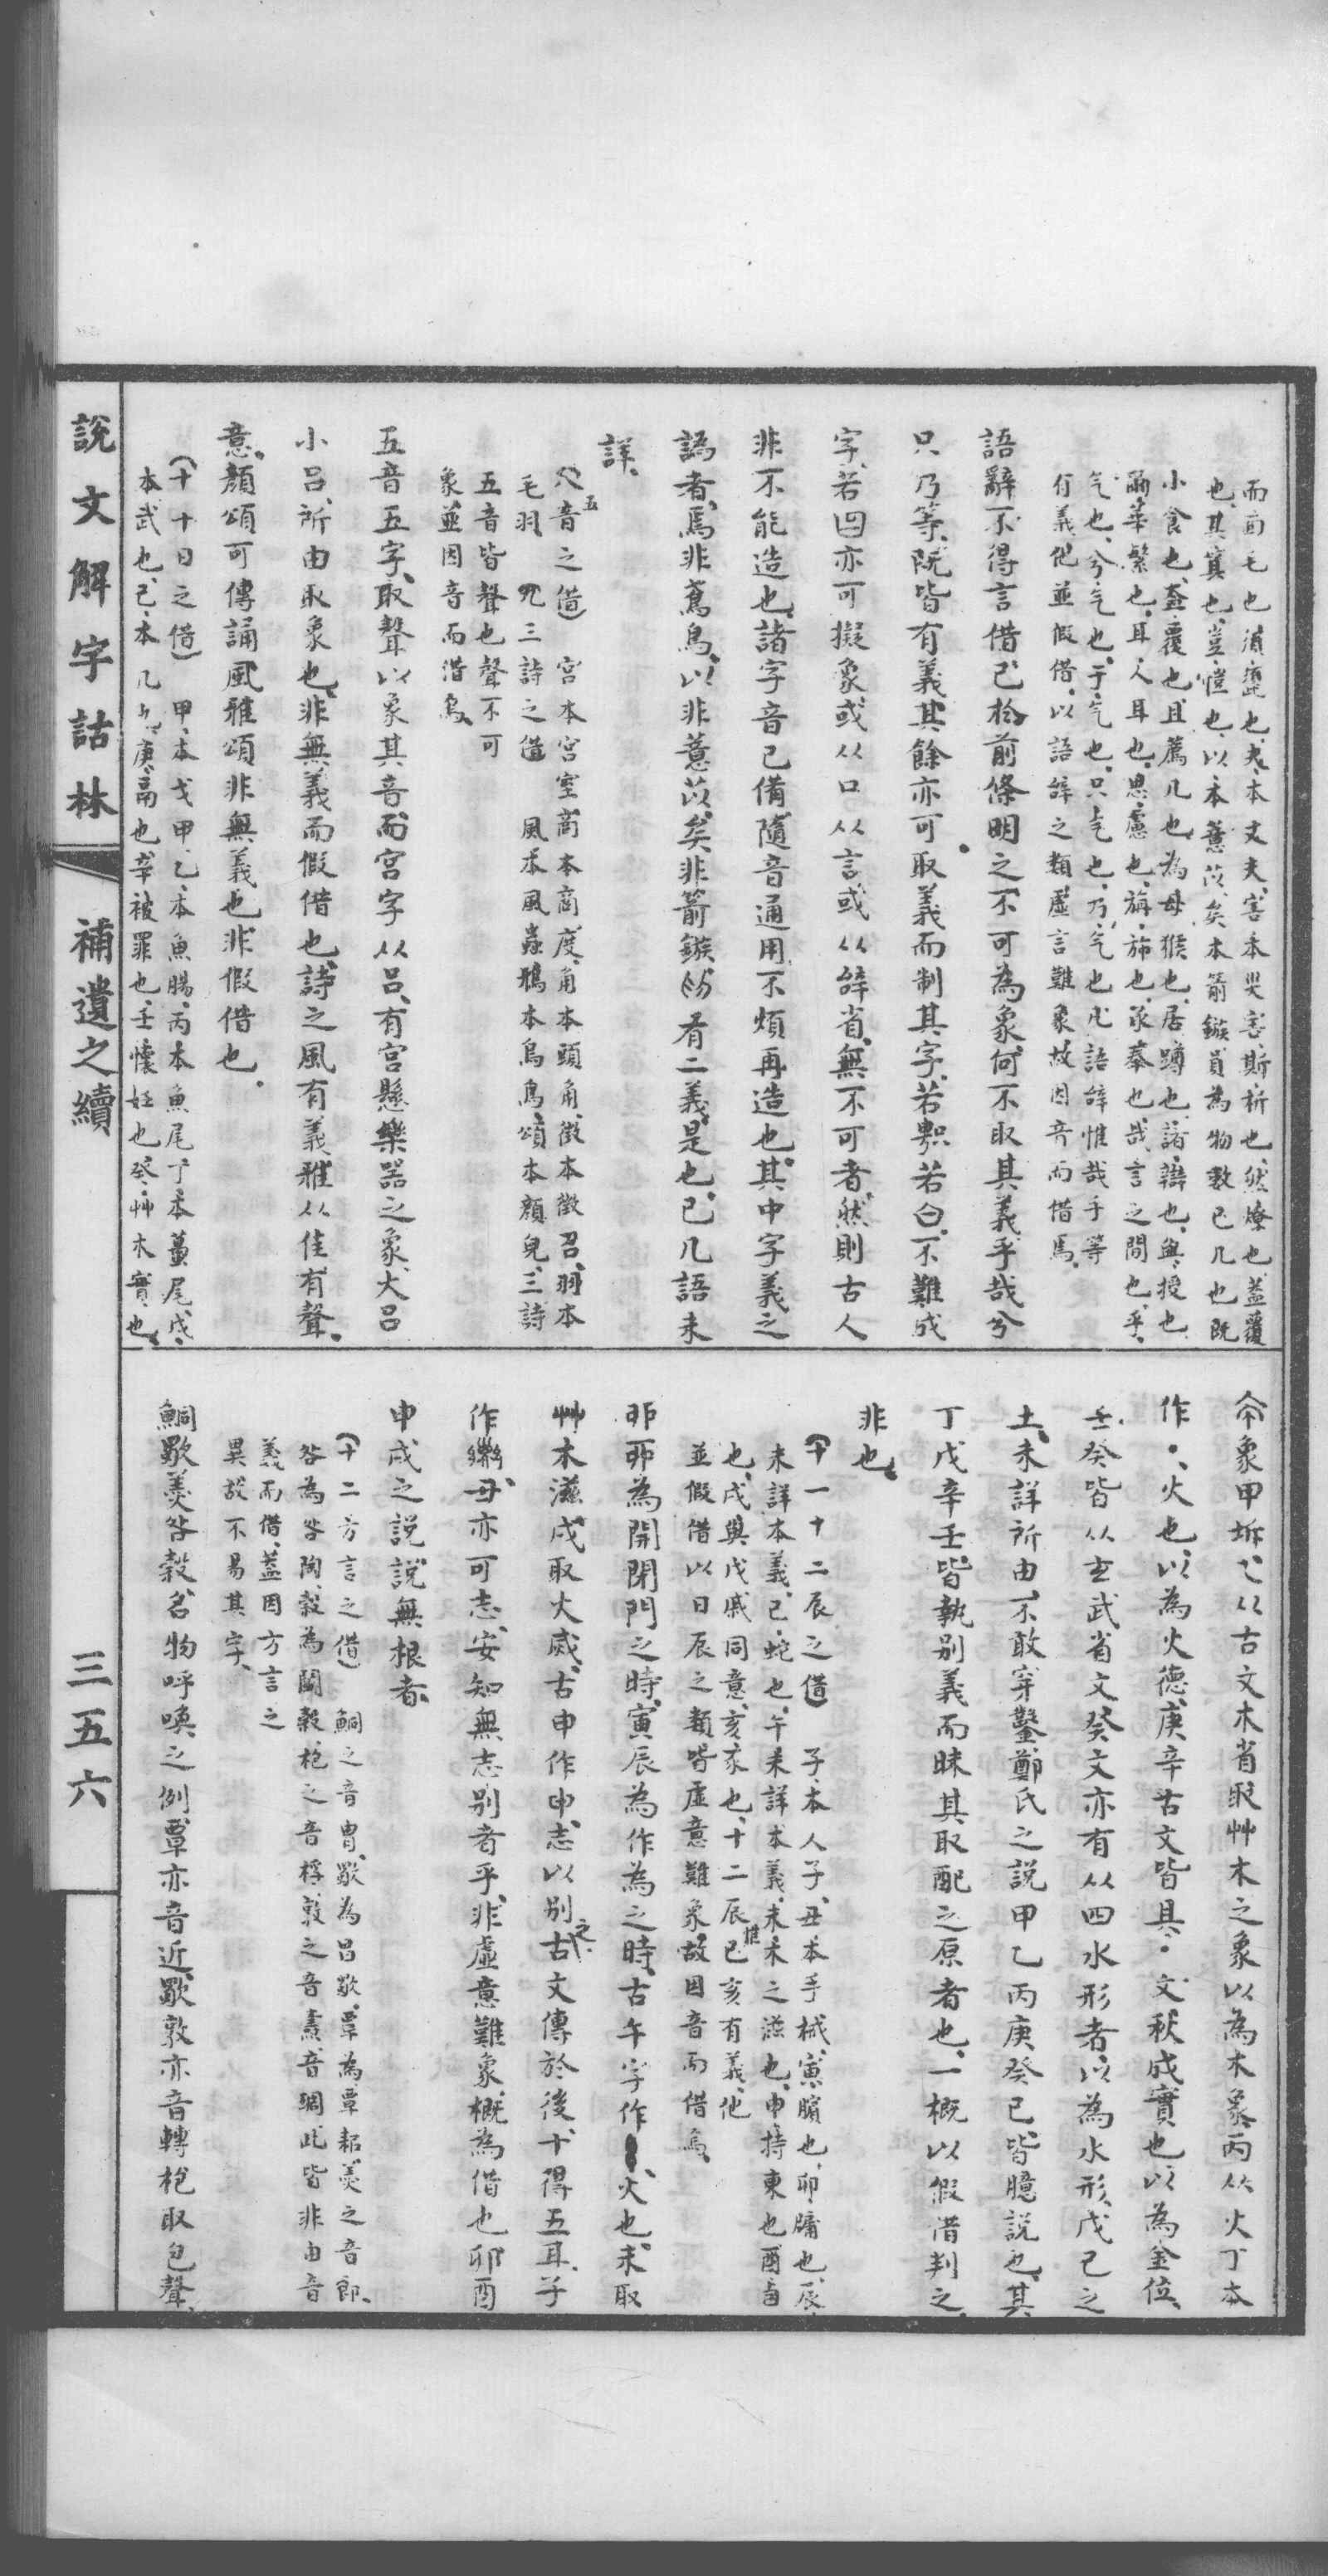 而面毛也須遮也、夫、本丈夫、害本災害、斯、析也、然燎也蓋覆
也、其箕也、豈、愷也、以本薏苡、矣本箭鏃員為物數已几也既
小食也、盍覆也且薦几也為母猴也、居蹲也諸、辯也、與授也
爾、華繁也、耳、人耳也、思慮也、旃、旆也、承奉也、哉言之間也、乎、
气也、兮气也、于、气也、只气也、乃、气也凡語辭惟哉乎等
有義他並假借、以語辭之類虛言難象故因音而借焉、
語辭不得言借已於前條明之不可為象何不取其義乎哉兮
只乃等、既皆有義其餘亦可取義而制其字、若粵若曰、不難成
字、若四亦可擬象或从口从言或从辭省、無不可者、然則古人
非不能造也、諸字音已備隨音通用不煩再造也、其中字義之
譌者、焉非鳶鳥、以非薏苡、矣非箭鏃、的有二義、是也、已凡語未
詳、
(八五音之借)　宮本宮室商本商度、角本頭角、徵本徵召、羽本
毛羽　(九三詩之借　風本風蟲鴉本烏鳥、頌本顏皃、三詩
五音皆聲也聲不可
象並因音而借焉、
五音五字、取聲以象其音、而宮字从呂、有宮懸樂器之象、大呂
小呂、所由取象也、非無義而假借也、詩之風有義雅从隹有聲、
意、顏頌可傳誦風雅頌非無義也、非假借也、
(十十日之借)　甲、本戈甲、乙、本魚腸、丙本魚尾丁本蠆尾、戊、
本武也、己、本几也、庚、鬲也辛被罪也、壬懷妊也癸、艸木實也、
說文解字詁林　補遺之續　三五六
象甲坼乙从古文木省取艸木之象以為木象、丙从火丁本
作●、火也、以為火德、庚辛古文皆具、文秋成實也以為金位、
壬、癸皆从玄武省文、癸文亦有从四水形者以為水形、戊己之
土、未詳所由、不敢穿鑿鄭氏之說甲乙丙庚癸已、皆臆說也、其
丁戊辛壬皆執別義而昧其取配之原者也、一概以假借判之、
非也、
(十一十二辰之借)　子、本人子、丑本手械、寅臏也、卯、牖也、辰、
未詳本義、巳、蛇也、午未詳本義、未木之滋也、申、持束也酉卣
也、戌與戊戚同意、亥豕也、十二辰惟巳亥有義、他
並假借以日辰之類皆虛意難象故因音而借焉、
丣丣為開閉門之時、寅辰為作為之時、古午字作、火也、未取
艸木滋、戌取火威、古申作申、志以別之、古文傳於後十得五耳、子
作㜽、丑、亦可志、安知無志別者乎、非虛意難象、概為借也、卯酉
申戌之說、說無根者、
(十二方言之借)　鮦之音冑、歜為呂歜、覃為覃耜、羹之音郎、
咎為咎陶、穀為鬬穀、枹之音桴、敦之音燾、音彫此皆非由音
義而借、蓋因方言之
異故不易其字、
鮦歜羹咎穀、名物呼喚之例、覃亦音近、歜敦亦音轉枹取包聲、